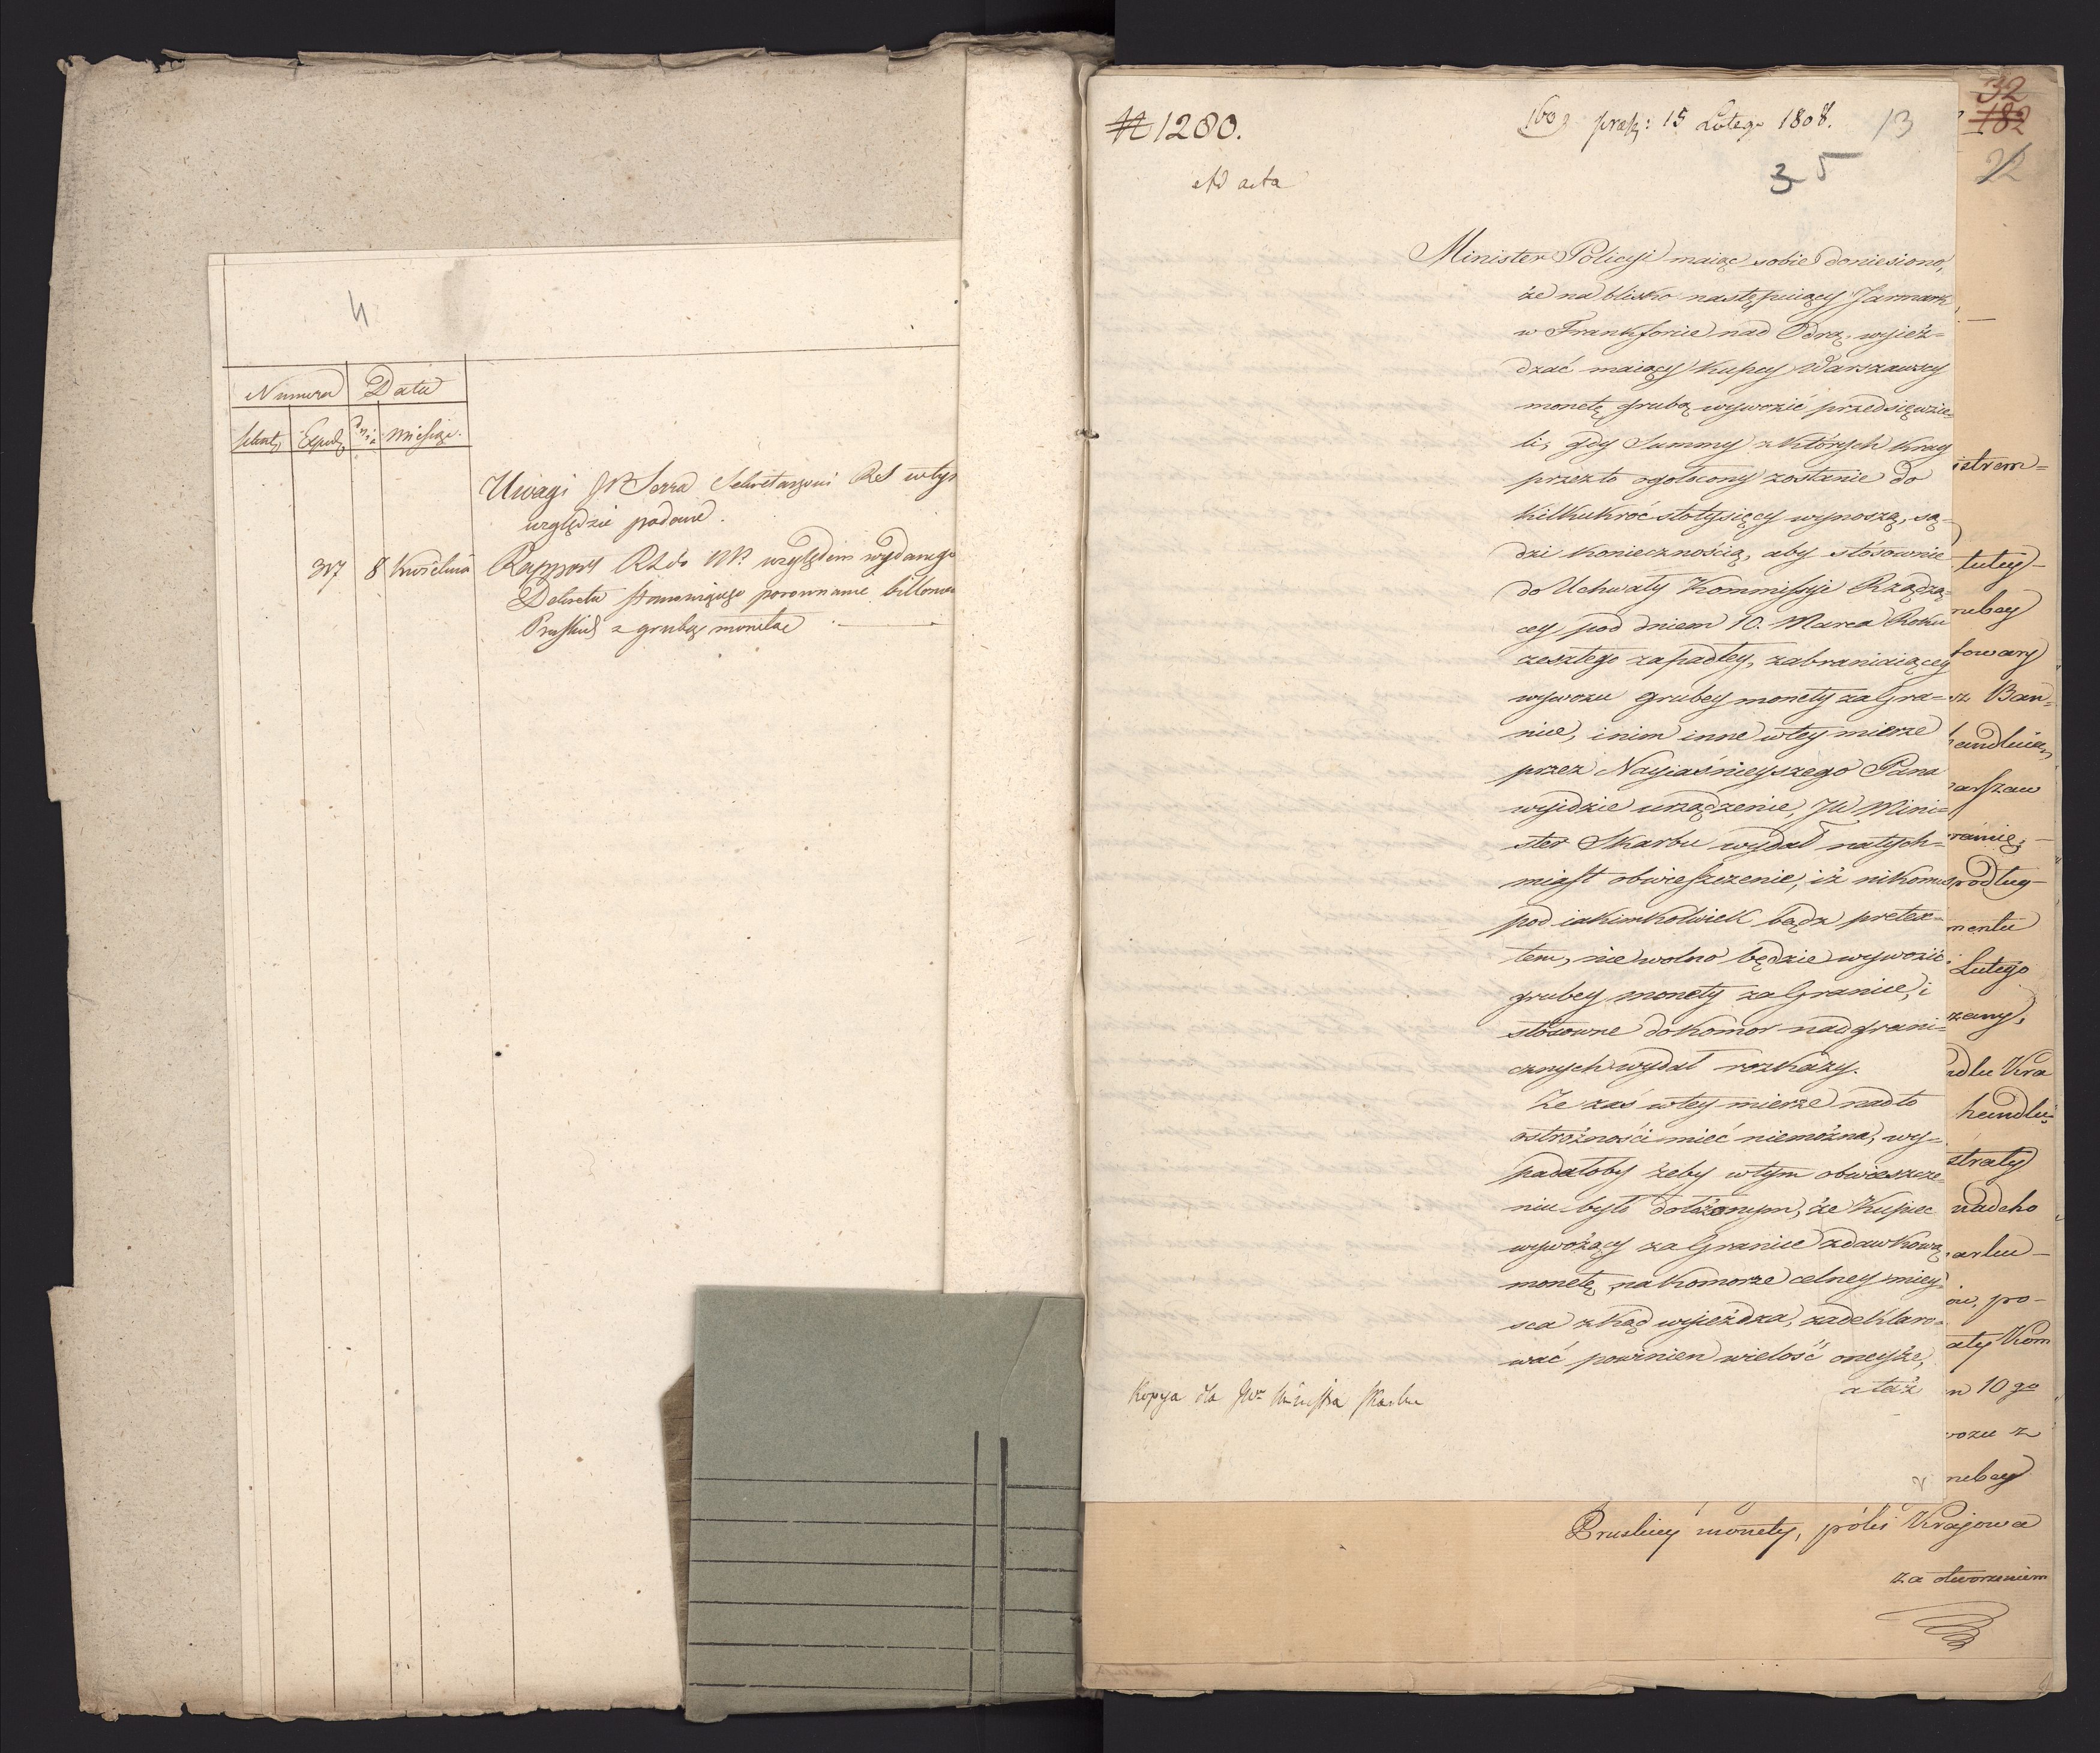 4
Numera Data
Expd. Dnia Miesiąc.
Uwagi JP Serra Sekretarzowi RS wtym
względzie podane.
317 8 Kwietnia Rapport RS do NP. względem wydanego
Dekretu stanowiącego porownanie billonu
Pruskiego z grubą monetą
N 1280.
160 præs: 15 Lutego 1808. 13
Ad acta
3 5
32
182
22
Minister Policyi maiąc sobie doniesiono,
że na blisko następuiący Jarmark
w Frankforcie nad Odrą, wyież=
dzać maiący Kupcy Warszawscy
monetę grubą wywozić przedsięwzie=
li, gdy Summy z których Kray
przezto ogołocony zostanie do
kilkukroć stotysięcy wynoszą, są=
dzi koniecznością, aby stósownie
do Uchwały Kommissyi Rządzą=
cey pod dniem 10. Marca Roku
zeszłego zapadłey, zabraniaiącey
wywozu grubey monety za Gra=
nice, i nim inne wtey mierze
przez Nayiaśnieyszego Pana
wyidzie urządzenie, JW Mini=
ster Skarbu wydał natych=
miast obwieszczenie, iż nikomu
pod iakimkolwiek bądz pretex=
tem, nie wolno będzie wywozić
grubey monety za Granice, i
stósowne do Komor nadgrani=
cznych wydał rozkazy.
Ze zaś wtey mierze nadto
ostrożności mieć niemożna, wy=
padałoby żeby wtym obwieszcze=
niu było dołożonym, że Kupiec
wywożący za Granice zdawkową
monetę, na Komorze celney miey=
sca zkąd wyieżdza, zadeklaro=
wać powinien wielość oneyże,
a też
Kopyia dla JWo Ministra Skarbu
istrem=
tutey=
rubey
towary
sz Ban=
handlu
arszaw
ranię,
podług
mentu
Lutego
zany,
dlu Kra
handlu=
straty
nadcho
arku
ow, po=
ały Kom
n 10go
wozu z
rubey
Pruskiey monety, póki Krajowa
za otworzeniem